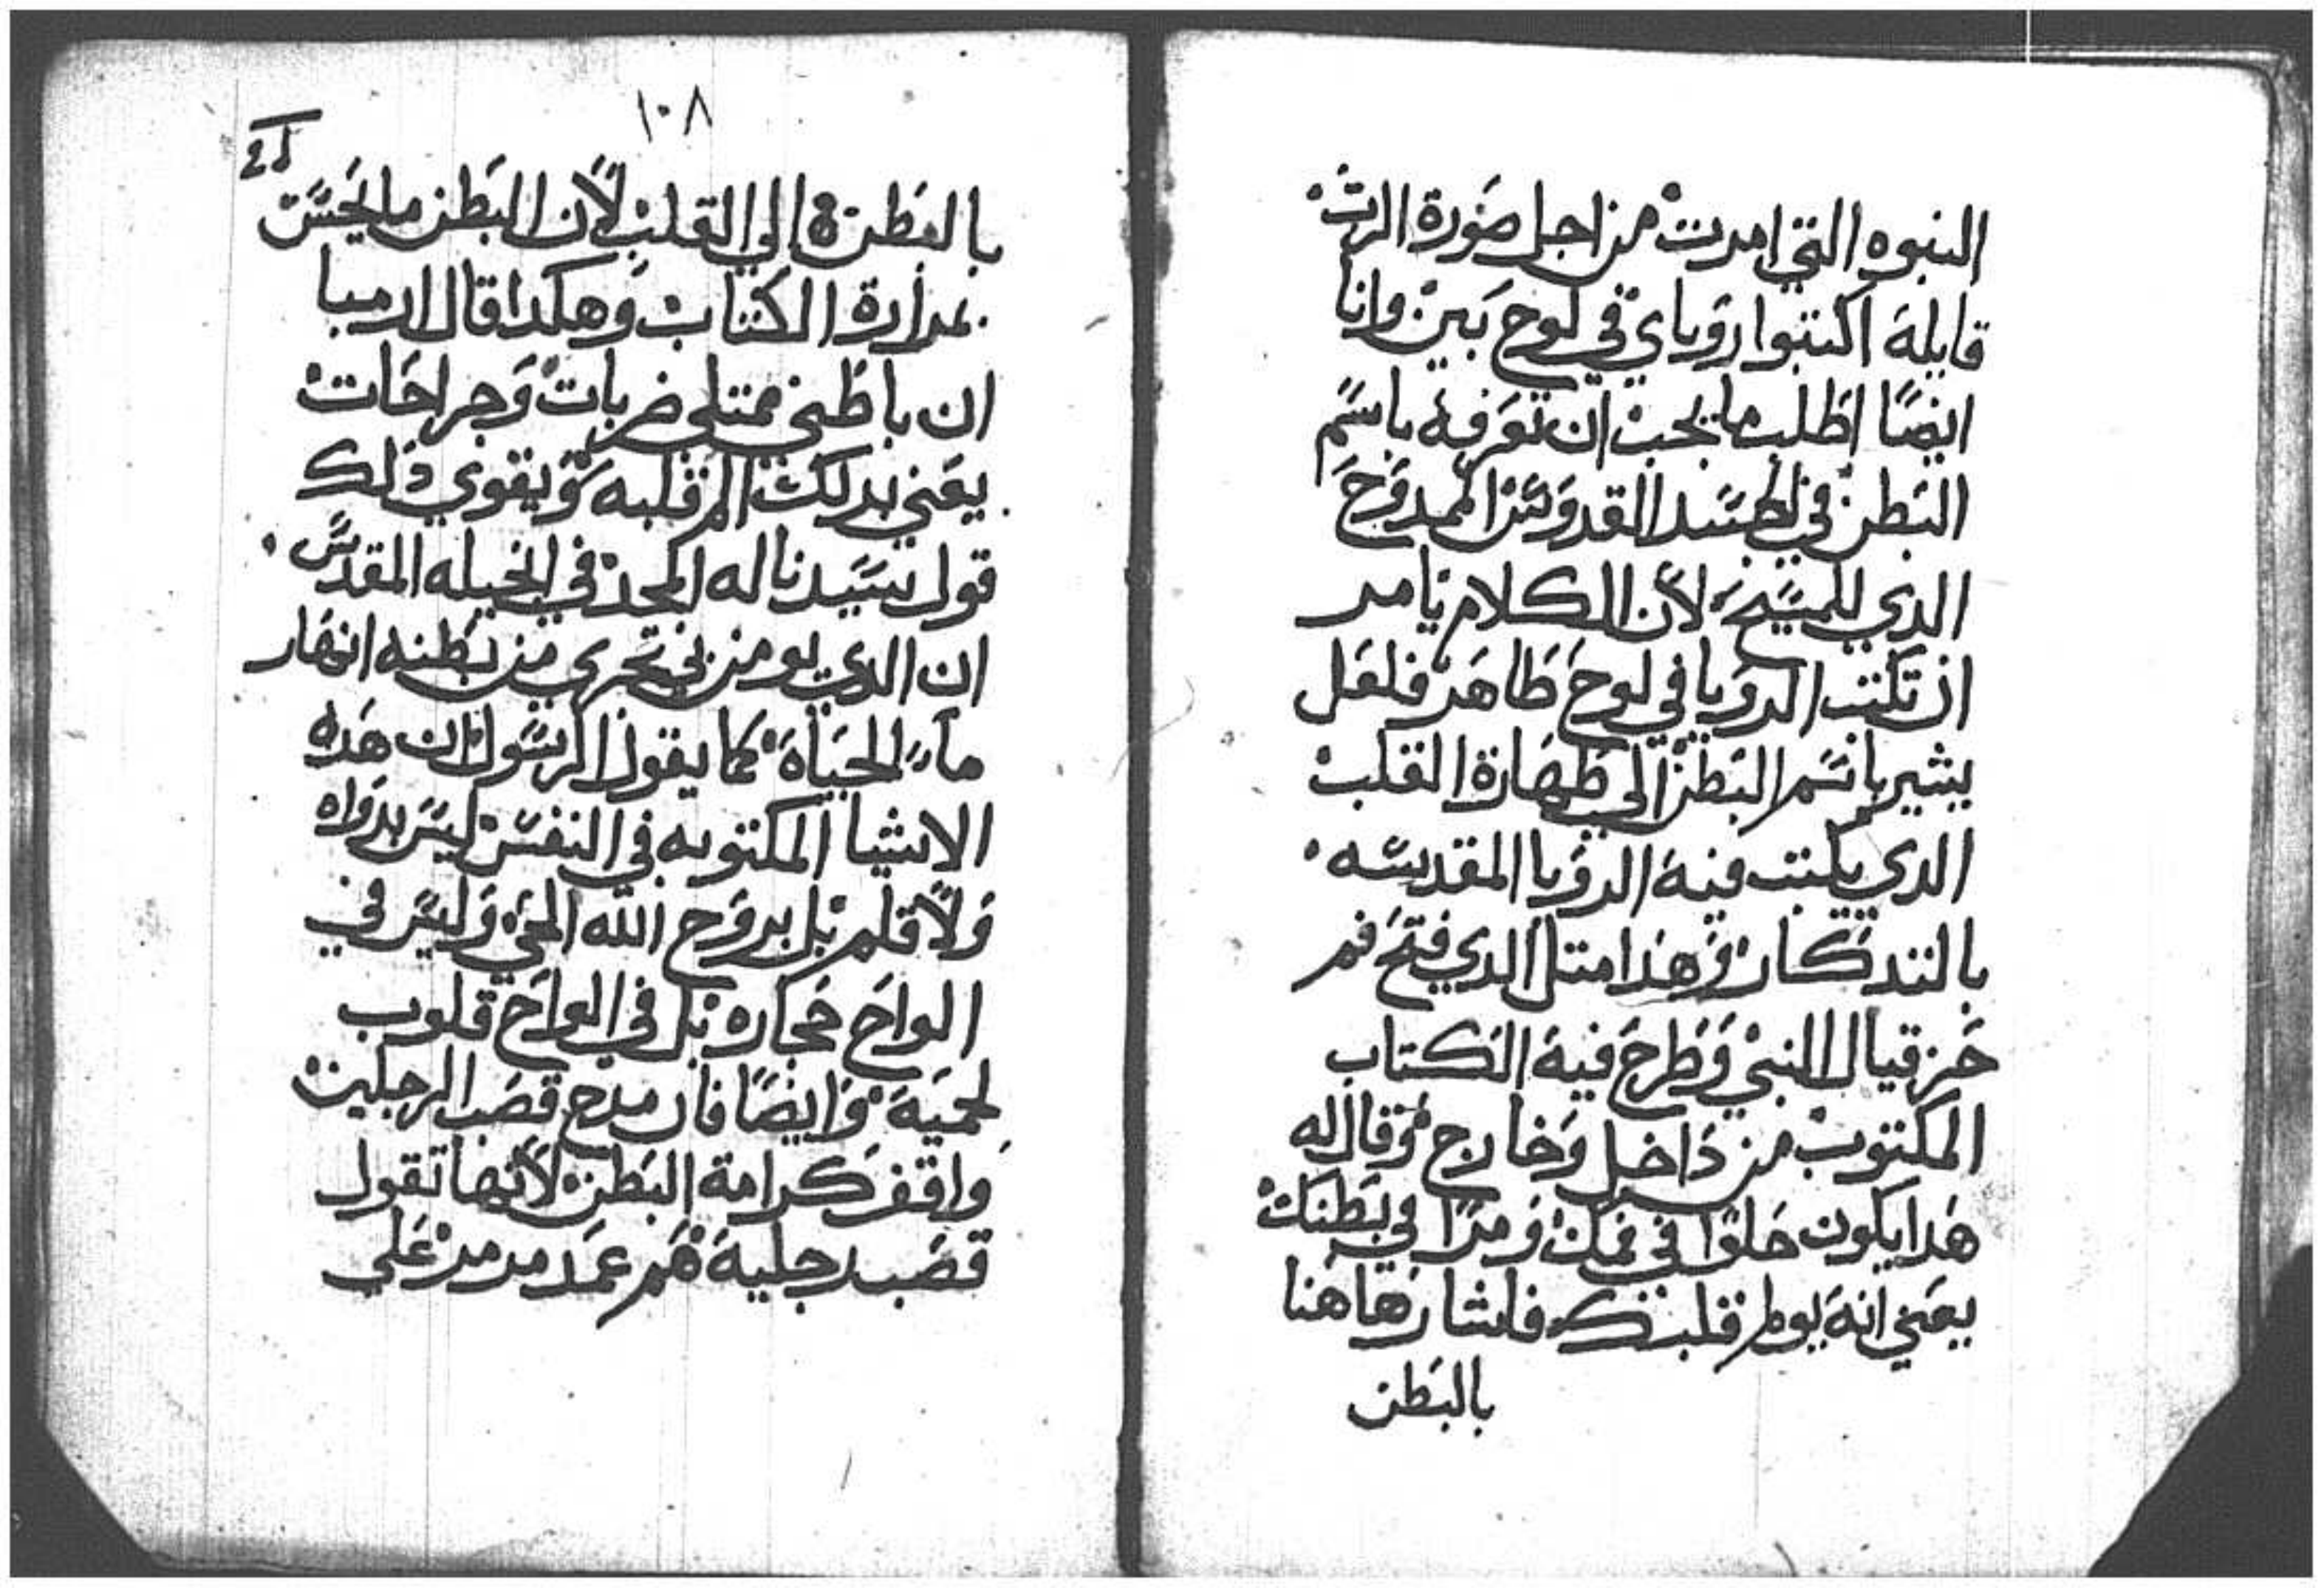 النبوه التي امرت من اجل صورة الرب
قايلة اكتبوا روياي في لوح بين وانا
ايضًا اطلب ما يجب ان نعرفه باسم
البطن في الجسد القدوس الممدوح
الدي للمسيح لان الكلام يامر
ان تكتب الرويا في لوح طاهر فلعل
يشير باسم البطن الي طهارة القلب
الدي يكتب فيه الرويا المقدسه
بالتدكار وهذا متل الدي فتح فم
حزقيال النبي وطرح فيه الكتاب
المكتوب من داخل وخارج وقال له
هدا يكون حلوًا في فمك ومرًا في بطنك
يعني انه يولم قلبك فاشار هاهنا
بالبطن
١٠٨
بالبطن الي القلب لان البطن ما يحس
بمرارة الكتاب وهكدا قال ارميا
ان باطني ممتلي ضربات وجراحات
يعني بدلك الم قلبه ويقوي ذلك
قول سيدنا له المجد في انجيله المقدس
ان الدي يومن بي تجري من بطنه انهار
ماء الحياة كما يقول الرسول ان هده
الاشيا المكتوبه في النفس ليس بدواه
ولا قلم بل بروح الله الحي وليس في
الواح حجاره بل في الواح قلوب
لحمية وايضًا فان مدح قصب الرجلين
واقف كرامة البطن لانها تقول
قصب رجلية هم عمد مرمر علي